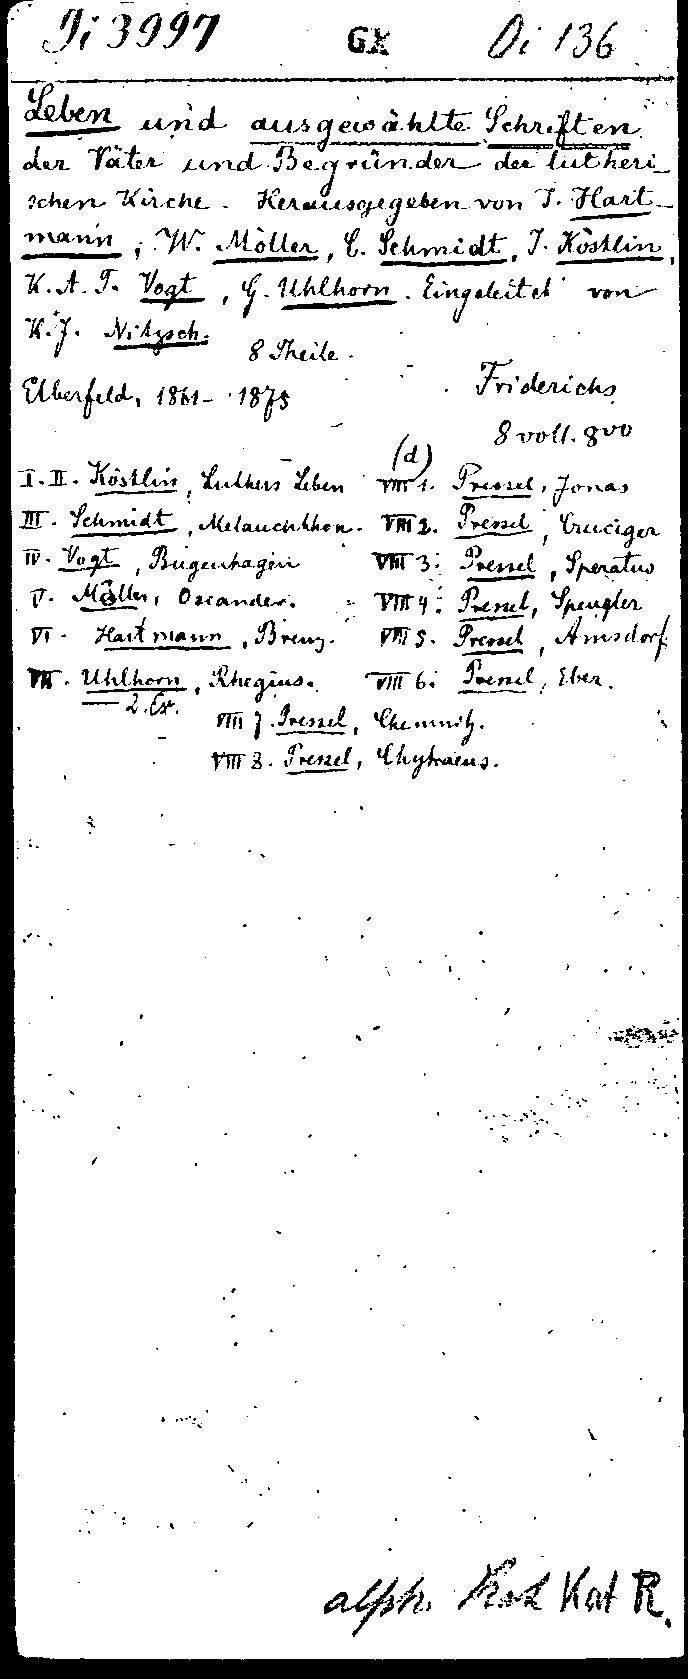 Di 3997 GX Oi 136
Leben und ausgewählte Schriften
der Väter und Begründer der lutheri-
schen Kirche. Herausgegeben von J. Hart-
mann, W. Möller, C. Schmidt, J. Köstlin,
K. A. T. Vogt, G. Uhlhorn. Eingeleitet von
K. J. Nitzsch.
8 Theile.
Elberfeld, 1861-1875 Friderichs
8 voll. 8vo
(d)
I. II. Köstlin, Luthers Leben VIII 1. Pressel, Jonas
III. Schmidt, Melanchthon. VIII 2. Pressel, Cruciger
IV. Vogt, Bugenhagen VIII 3. Pressel, Speratus
V. Möller, Osiander. VIII 4. Pressel, Spengler
VI. Hartmann, Brenz. VIII 5. Pressel, Amsdorf
VII. Uhlhorn, Rhegius. VIII 6. Pressel, Eber.
2. Ex. VIII 7. Pressel, Chemnitz.
VIII 8. Pressel, Chytraeus.
alph. Kat R.